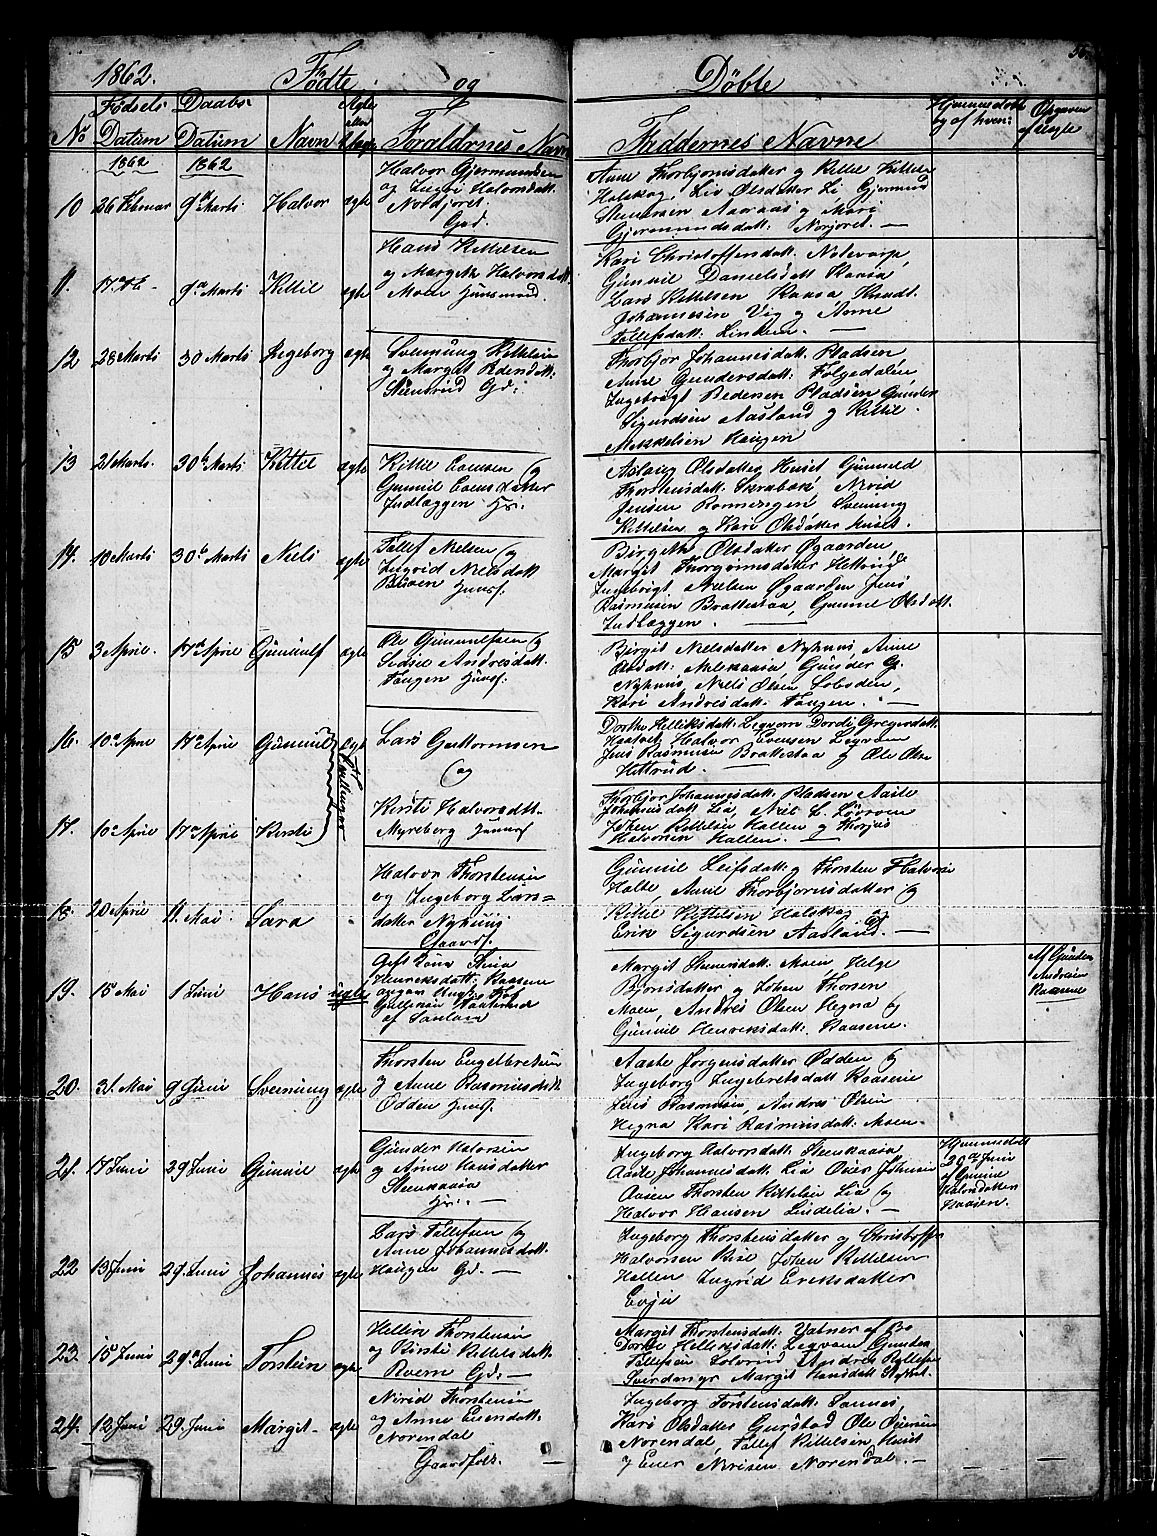 1862. Fødte og Døbte
No Fødsels Datum Daabs Datum Navn Ægte eller Uægte Foraldrnes Navn Faddernes Navne Hjemmedøbt og af hvem: Opgaven af Uægte
1862 1862
10 26 Februar 9de Marts Halvor ægte
Halvor Gjermundsen
og Ingri Halvorsdatt:
Nordjoret
Grd.
Anne Thorbjornsdatter og Kittil Kittels
Halskog, Liv Olsdatter Li Gjermund
Stenersen Aaraas og Mari
Gjermundsdatt: Norjoret. —
11. 17 Feb - 9de Marts Kittil ægte
Hans Kittelsen
og Margith Halvorsdatt
Moen Huusmand.
Kari Christoffersdatt. Notevarp,
Gunnil Danielsdatt Kaasa
Lars Kittelsen Kaasa Knudt
Johannesen Vig og Anne
Tollefsdatt: Linden. —
12 28 Marts 30 Marts Ingeborg ægte
Svenung Kittelsen
og Margit Pedersdatt:
Steensrud Gd:
Thorbjor Johannesdatt. Pladsen,
Anne Gundersdatt: Folgedalen,
Ingebrigt Pedersen Pladsen Gunder
Sigurdsen Aasland og Kittil
Mikkelsen Haugen
13 21 Marts. 30te Marts Kittil ægte
Kittil Evensen og
Gunnil Evensdatter
Indlæggen Hs:
Aslaug Olsdatter Huset Gunnild
Thorstensdatt: Skrabek, Nirid
Jensen Rominngen Svenung
Kittelsen og Kari Olsdatter Huset.
14. 10 Marts 30te Marts Niels ægte
Tollef Nielsen og
Ingrid Nielsdatt
Buven Huusf.
Birgith Olsdatter Øgaarden,
Margit Thorgrimsdatter Hettrud
Ingebrigt Nielsen Øgaarden Jens
Rasmusen Brattestaa, Gunnil Olsdatt.
Indlæggen. —
15 3 April. 17de April Gunnulf ægte
Ole Gunnulfsen og
Sidsel Andresdatt.
Tangen Huusf.
Birgit Nielsdatter Nyhuus, Anne
Olsdatt: Melkaasa Gunder G.
Nyhuus Niels Olsen Lobsden,
Kari Andresdatt: Tangen. —
16. 10de April 17de April Gunnil ægte Tvillinger
Lars Guttormsen
og
Dorthe Helliksdatt: Legvorn Dordi Gregersdatt
Haatvet Halvor Evensen Legvorn
Jens Rasmusen Brattestaa og Ole Olsen
Hettrud. —
17. 10de April 17de April Kirsti
Kirsti Halvorsdtt.
Myreberg Huusf
Thorbjor Johannesdatt. Pladsen Aaste
Johannesdatt Lia, Niels L. Lovoen
Johen Kittelsen Hallen og Thorjus
Halvorsen Hallen. —
18. 20 April 11. Mai Sara
Halvor Thorstensen
og Ingeborg Lars=
datter Nyhuus
Gaardf.
Gunnil Leifsdatt og Thorsten Halvorsen
Holte, Anne Thorbjornsdatter og
Kittil Kittelsen Halskog og
Erik Sigurdsen Aasland. —
19. 15 Mai 1 Juni Hans uægte
Gift Kone Anne
Henriksdatt: Kaasene
Gullersen
af Sanland
Margit Stenersdatt: Moen Helge
Bjornsdatter og Johen Thorsen
Moen, Andres Olsen Hegna og
Gunnil Henriksdatt: Kaasene.
Af Gunder
Andreas
Kaasene
20. 31 Mai 9 Juni Svenung ægte
Thorsten Engelbretsen
og Anne Rasmusdatt
Odden Huusf.
Aaste Jorgensdatter Odden og
Ingeborg Ingebretsdatt Kaasene
Jens Rasmusen, Andres Olsen
Hegna Kari Rasmusdatt: Moen.
21. 17 Juni 29 Juni Gunnil ægte
Gunder Halvorsen
og Anne Hansdatter
Steenkaasa
Hs: —
Ingeborg Halvorsdatt. Steenkaasa
Aaste Johannesdatt. Lia Over Johnsen
Aasen Thorsten Kittelsen Lia og
Halvor Hansen Lindelia. —
Hjemmedøbt
20de Juni
af Gunnil
Halvorsdatter
Kaasen.
22 13 Juni 29. Juni Johannis ægte
Lars Tollefsen og
Anne Johannesdatt.
Haugen Gd. —
Ingeborg Thorstensdatter og Christoffer
Halvorsen Rise Johen Kittelsen
Hallen Ingrid Eriksdatter
Evju
23. 15 Juni 29de Juni Torstein ægte
Hellik Thorstensen
og Kirsti Kittilsdatt.
Roern Gd: —
Margit Thorstensdatt: Vatner af Bø
Dorthe Helliksdatt: Legvorn Gunder
Tollefsen Solvrud Andres Kittelsen
Sverdanger Margit Hansdatt Rygset.
24. 12 Juni 29. Juni Margit - ægte
Nirid Thorstensen
og Anne Eversdatt.
Norendal
Gaardfolk. —
Ingeborg Torstensdatt: Sannes,
Kari Olsdatter Gurstad Ole Evensen
Norendal, Tollef Kittelsen Huset
og Ever Nirisen Norendal. —